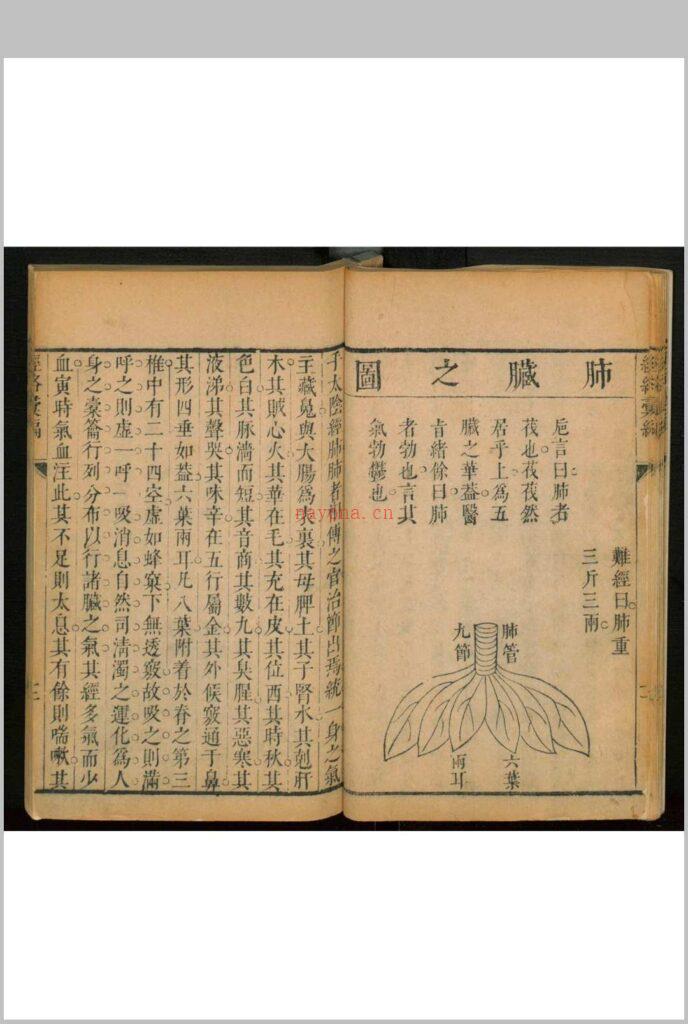 經絡彙編
肺臟之圖
巵言曰肺者
茷也茷茷然
居乎上爲五
臟之華葢醫
肯緒餘曰肺
者勃也言其
氣勃鬱也
難經曰肺重
三斤三兩
肺管
九節
六葉
兩耳
手太陰經肺肺者相傅之官治節出焉統一身之氣
主藏魄與大腸爲表裏其母脾土其子腎水其剋肝
木其賊心火其華在毛其充在皮其位西其時秋其
色白其脉濇而短其音商其數九其臭腥其惡寒其
液涕其聲哭其味辛在五行屬金其外候竅通于鼻
其形四垂如葢六葉兩耳凡八葉附着於脊之第三
椎中有二十四空虛如蜂窠下無透竅故吸之則滿
呼之則虛一呼一吸消息自然司清濁之運化爲人
身之橐籥行列分布以行諸臟之氣其經多氣而少
血寅時氣血注此其不足則太息其有餘則喘嗽其
經絡彙編
三
nayona.cn